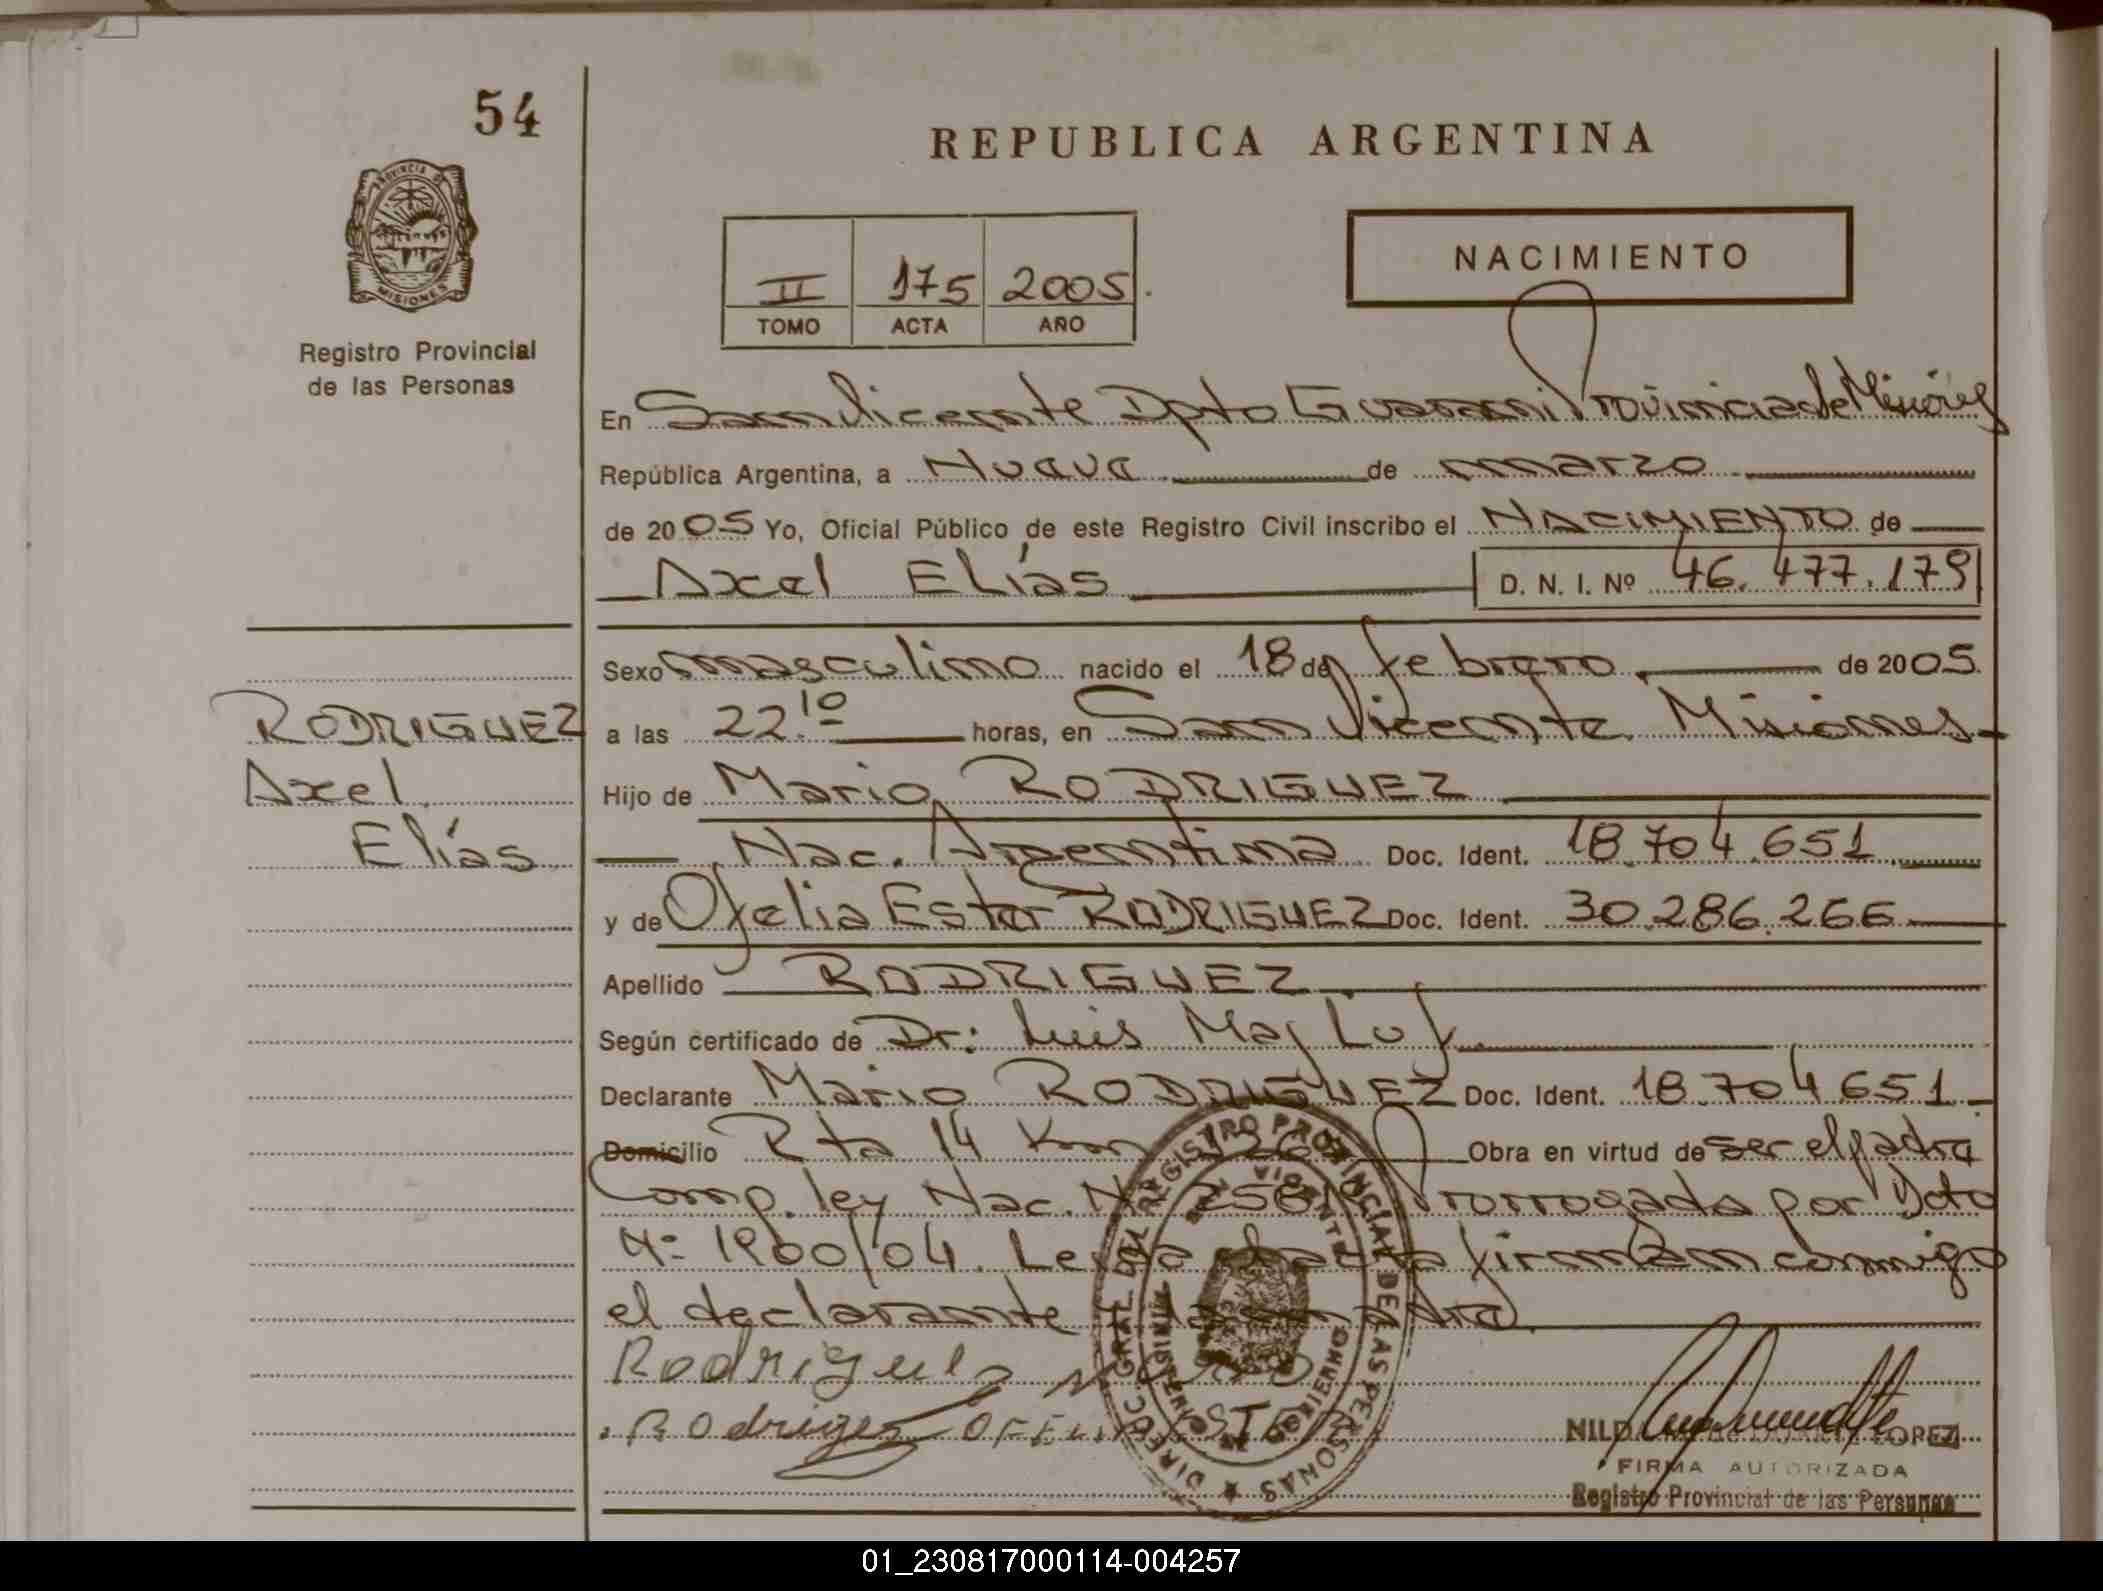 54
REPUBLICA ARGENTINA
PROVINCIA DE
MISIONES
Registro Provincial
de las Personas
NACIMIENTO
II 175 2005.
TOMO ACTA AÑO
En San Vicente Dpto Guarani Provincia de Misiones
República Argentina, a Nueve de marzo
de 2005 Yo, Oficial Público de este Registro Civil inscribo el NACIMIENTO de
Axel Elías D. N. I. Nº 46.477.179
Sexo masculino nacido el 18 de febrero de 2005.
RODRIGUEZ
Axel
Elías
a las 22.10 horas, en San Vicente Misiones
Hijo de Mario RODRIGUEZ
Nac. Argentina Doc. Ident. 18.704.651
y de Ofelia Ester RODRIGUEZ Doc. Ident. 30.286.266
Apellido RODRIGUEZ
Según certificado de Dr: Luis Majluf
Declarante Mario RODRIGUEZ Doc. Ident. 18.704.651
Domicilio Rta 14 Km Obra en virtud de ser el padre
Comp. ley Nac. Nº Prorrogada por Dcto
Nº 1900/04. Leida firman conmigo
el declarante y la madre
Rodriguez
Rodrigez OFELIA ESTER
DIREC. GRAL DEL REGISTRO PROVINCIAL DE LAS PERSONAS
MINISTERIO GOBIERNO
NILDA LOPEZ
FIRMA AUTORIZADA
Registro Provincial de las Personas
01_230817000114-004257